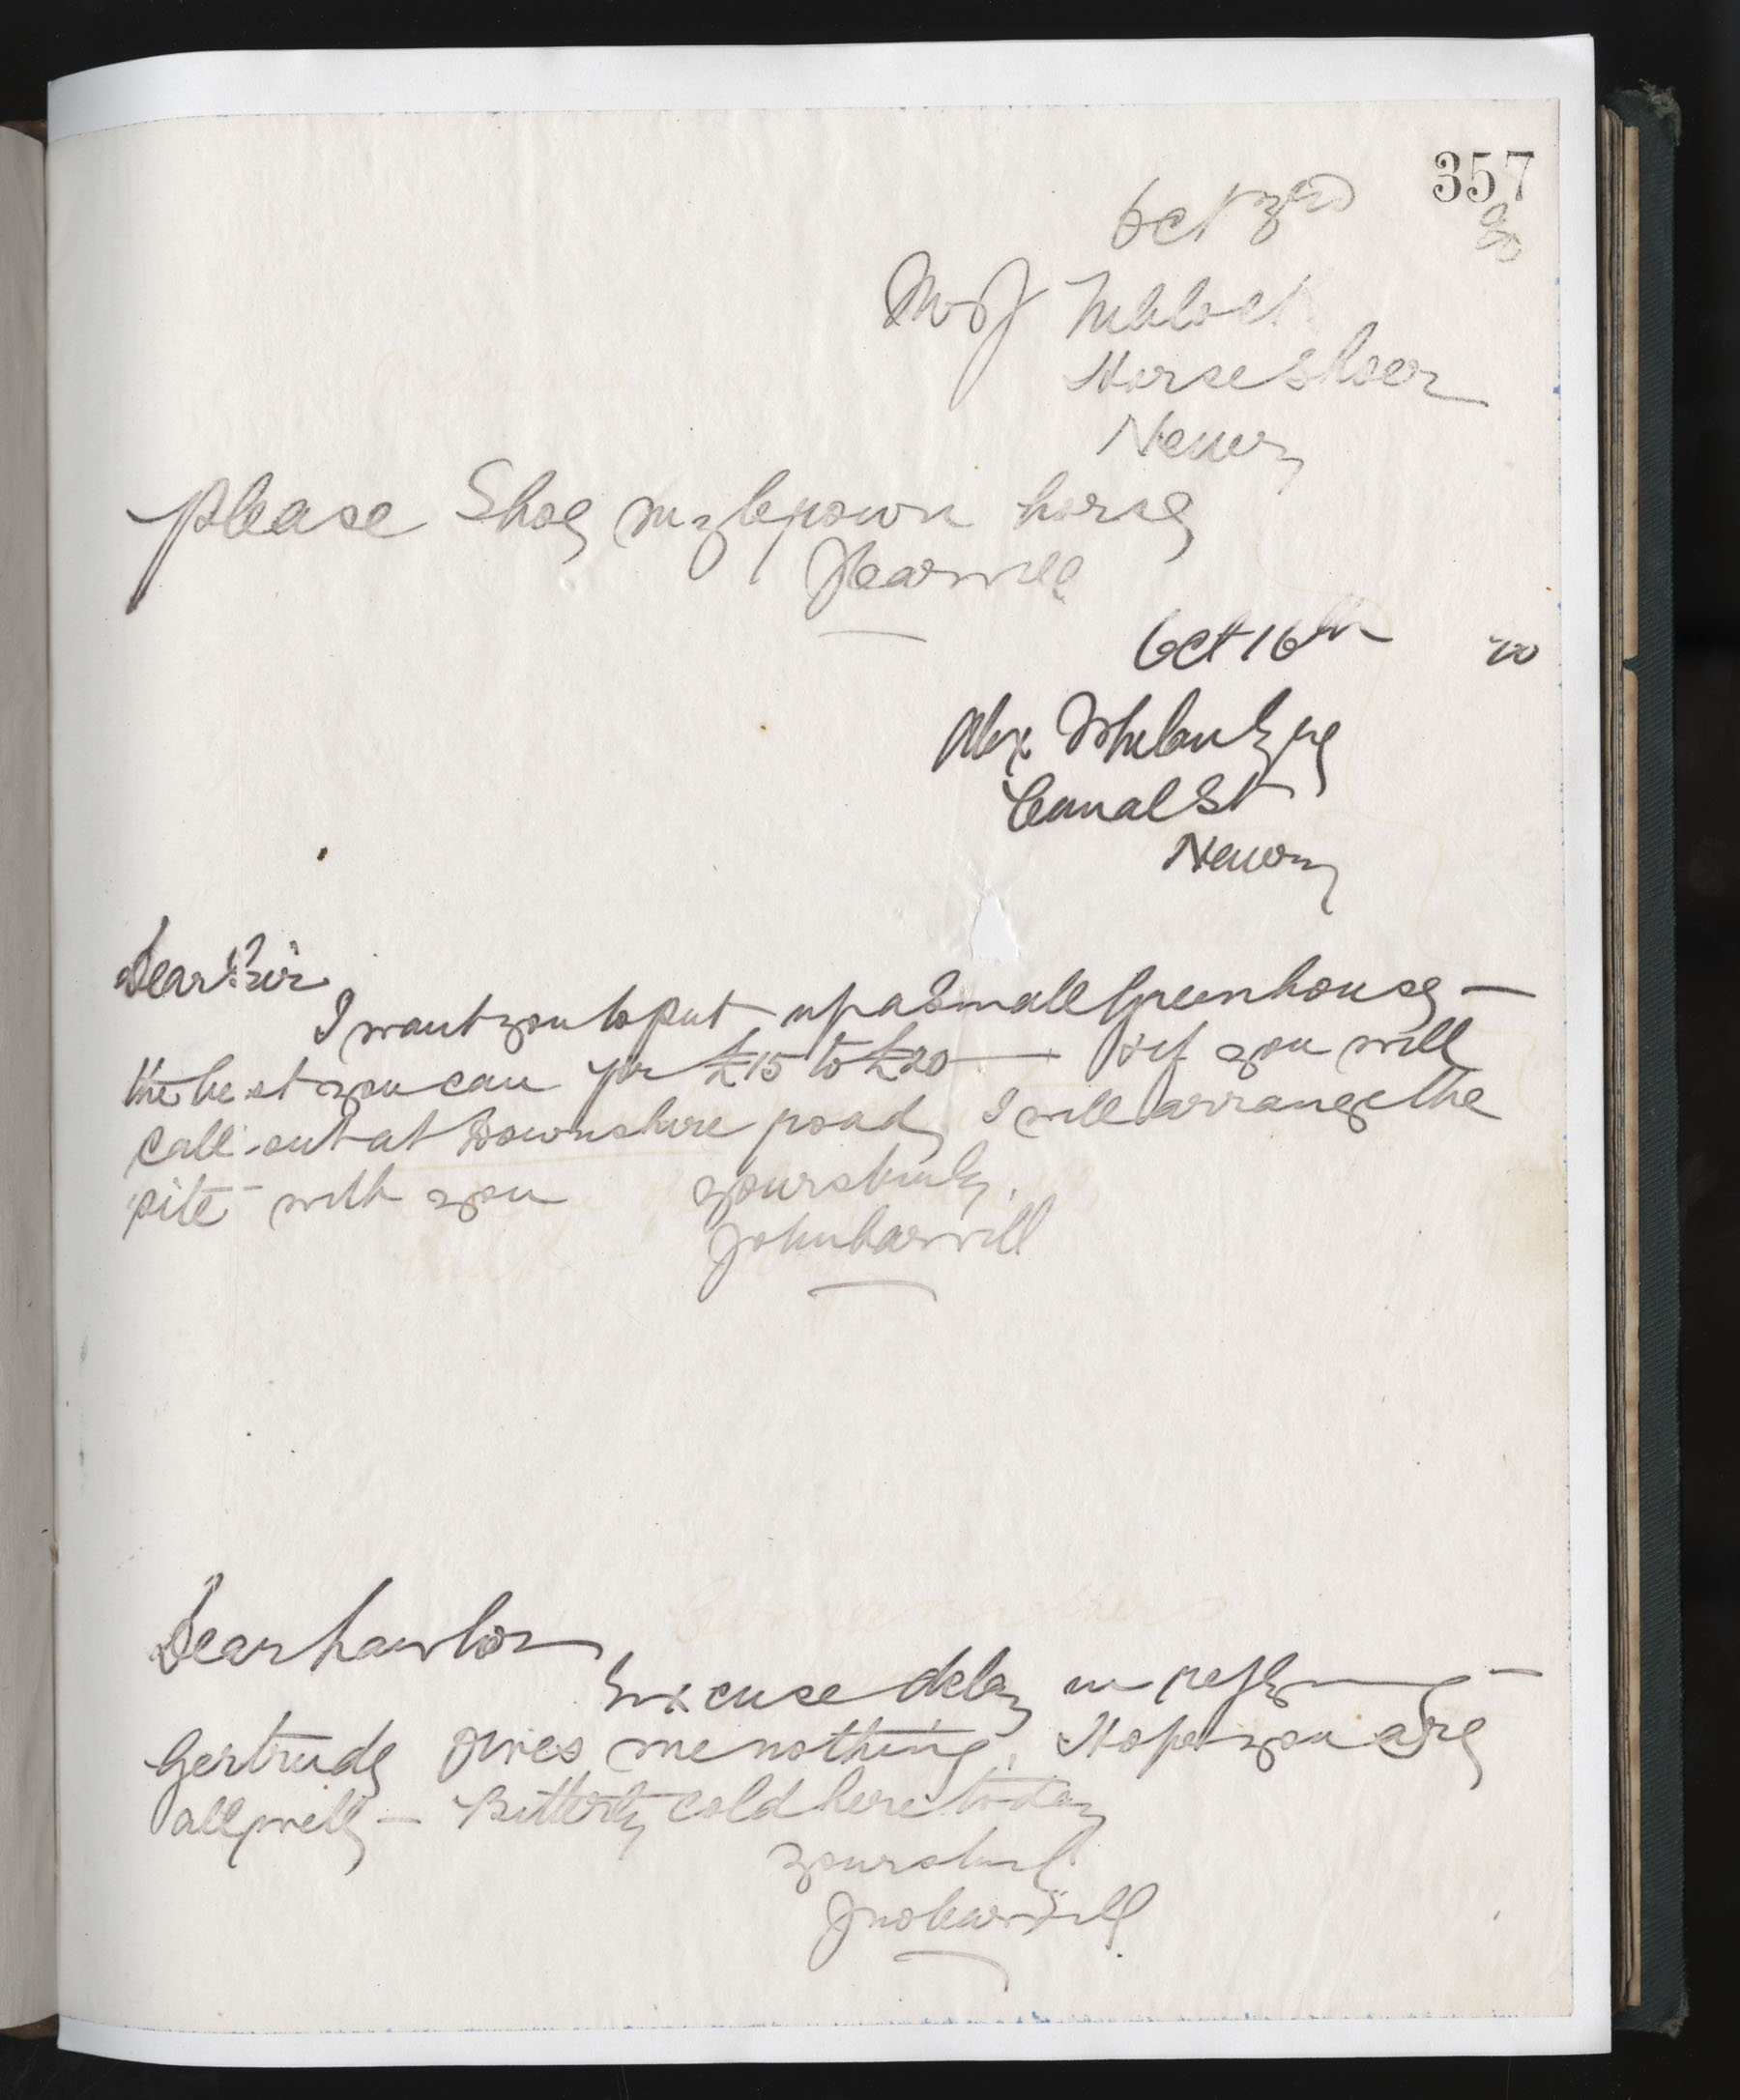 357
Oct 3rd 90
Mr J
Horse Shoer
Newry
please Shoe my brown horse
JCarvill
Oct 16th 90
Alex Whelan Esqre
Canal St
Newry
Dear Sir
I want you to put up a Small Greenhouse —
the best you can for £15 to £20 — & if you will
call out at Downshire road I will arrange the
site with you yours truly,
John Carvill
Dear Lawlor
Excuse delay in reply —
Gertrude owes me nothing. Hope you are
all well — Bitterly cold here today
yours truly
Jno Carvill